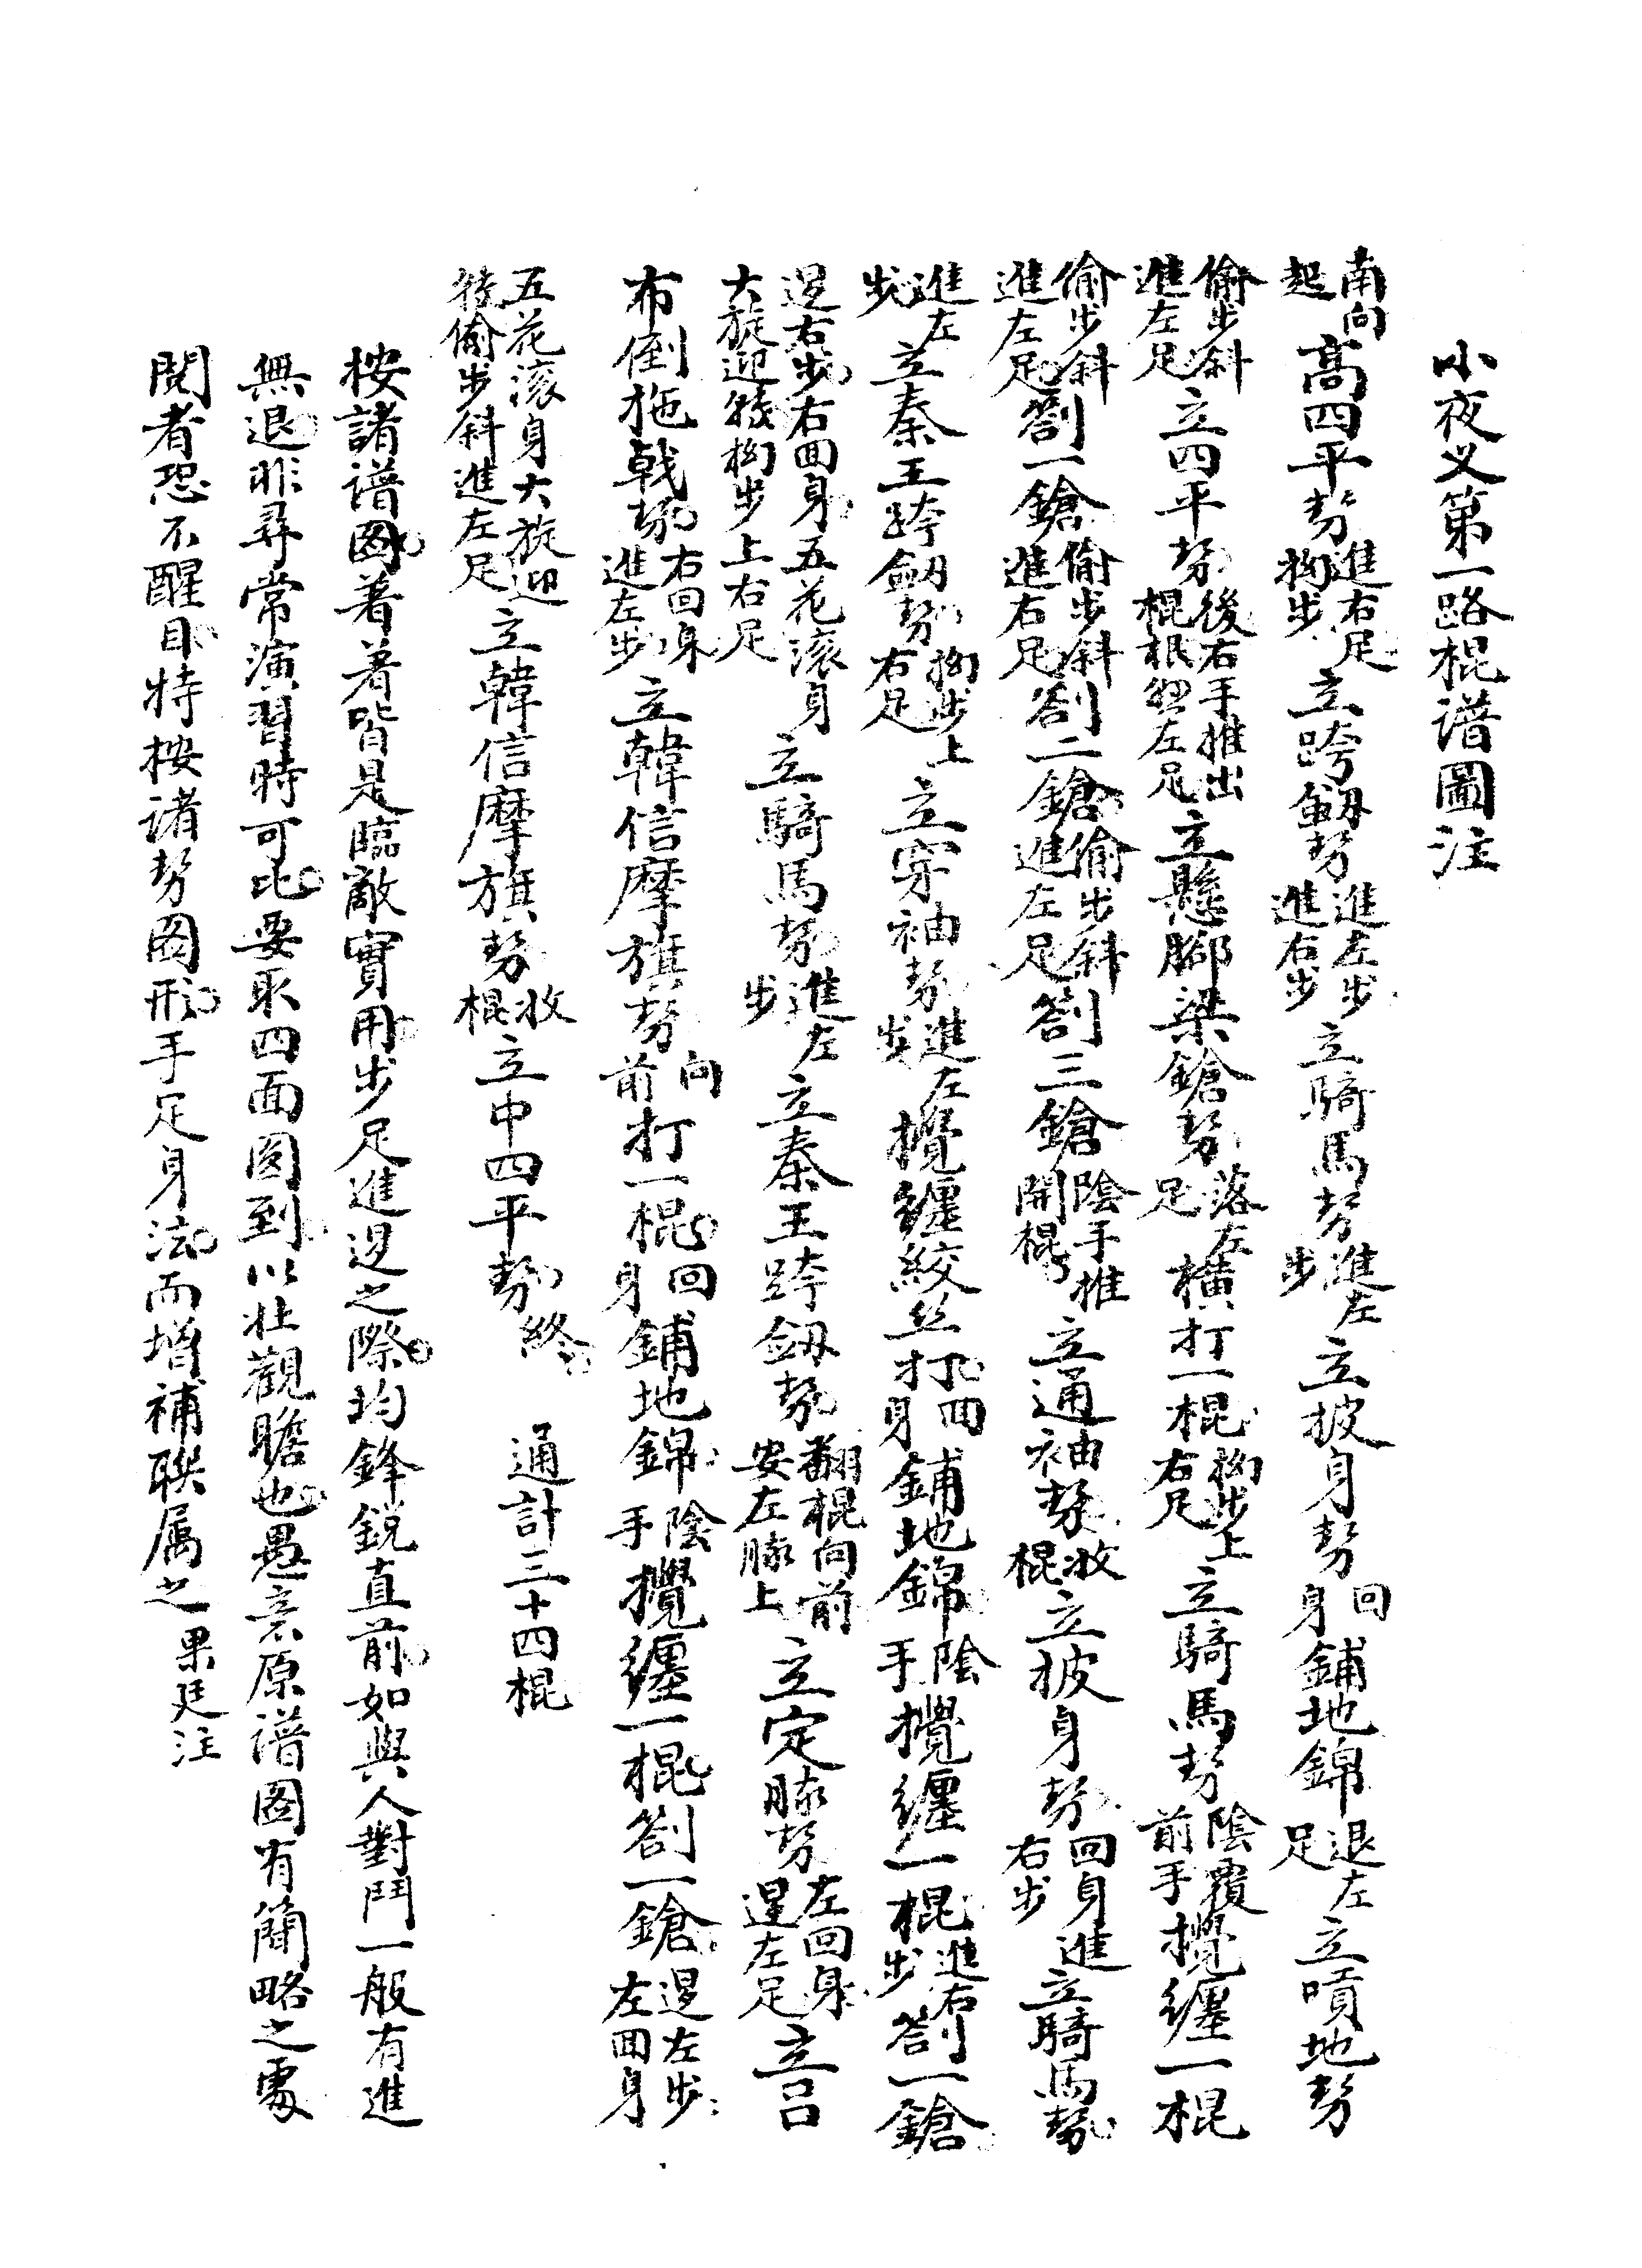 小夜叉第一路棍谱圖注
南向起高四平势進右足拗步立跨劔势進左步進右步立騎馬势進左步立披身势回身鋪地錦退左足立噴地势
偷步斜進左足立四平势後右手推出棍根懸左足立懸脚梁鎗势落左足橫打一棍拗步上右足立騎馬势陰覆前手攪纏一棍
偷步斜進左足劄一鎗偷步斜進右足劄二鎗偷步斜進左足劄三鎗陰手推開棍立通袖势收棍立披身势回身進右步立騎馬势
進左步立秦王跨劔势拗步上右足立穿袖势進左步攪纏絞丝打回身鋪地錦陰手攪纏一棍進右步劄一鎗
退右步右回身五花滚身大旋迎转拗步上右足立騎馬势進左步立秦王跨劔势翻棍向前安左膝上立定膝势左回身退左足立吕
布倒拖戟势右回身進左步立韓信摩旗势向前打一棍回身鋪地錦陰手攪纏一棍劄一鎗退左步左回身
五花滚身大旋迎转偷步斜進左足立韓信摩旗势收棍立中四平势終 通計三十四棍
按諸谱图著著皆是臨敵實用步足進退之際均鋒鋭直前如與人對鬥一般有進
無退非尋常演習時可比要取四面图到以壯觀瞻也愚意原谱图有簡略之處
閱者恐不醒目特按诸势图形手足身法而增補聯属之 果廷注